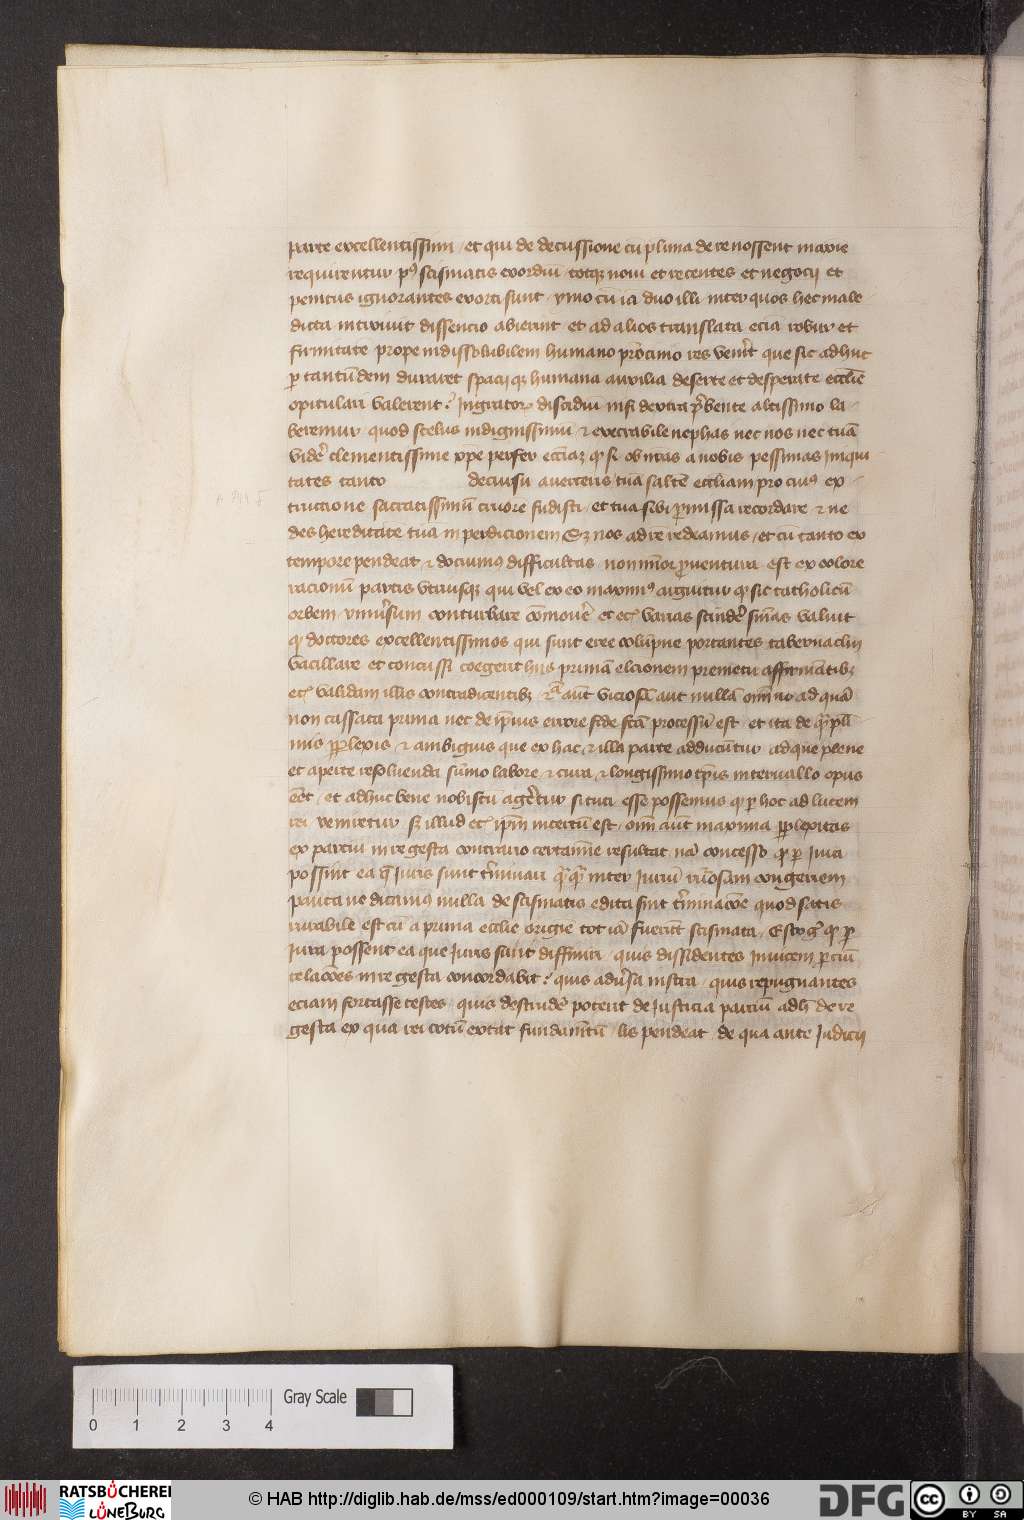 parte excellentissimi / et qui de decussione cu plima de re nossent maxie
requirentur pꝰ scismatis exordiu totqꝫ noui et recentes et negocij et
penitus ignorantes exorti sunt · ymo cu ia duo illi inter quos hec male
dicta intrauit dissencio abierint et ad alios translata ecia robur et
firmitate prope indissolubilem humano procinio res venit que sic adhuc
p tantudem duraret spacij qꝫ humana auxilia deserte et desperate ecclie
opitulari valerent · Ingrator discidiu nisi dextra pbente altissimo la
beremur · quod scelus indignissimu et execrabile nephas nec nos nec tua
vide clementissime xpe perfer ecciaꝫ qꝫ si ob nras a nobis pessimas iniqui
tates tanto decursu auerteris tua salte eccliam pro cuiꝰ ex
tructione sacratissimu cruore fudisti / et tua sibi pmissa recordare et ne
des hereditate tua in perdicionem Sꝫ nos ad re redeamus / et cu tanto ex
tempore pendeat / et docuimꝰ difficultas non minor puentura est ex colore
racionu partis vtriusqꝫ qui vel ex eo maximꝰ arguitur qꝫ sic catholicu
orbem vniusum conturbare comoue et ec varias scinde smas valuit
qꝫ doctores excellentissimos qui sunt eree columpne portantes tabernaclm
vacillare et concussi coegerit hiis prima elcionem premetu affirmatibꝫ
et validam illis contradicentibꝫ aut viciosa aut nulla omnino ad qua
non cassata prima nec de ipius errore fide fca processu est et ita de
mis pplexis et ambiguis que ex hac et illa parte adducutur ad que plene
et aperte resoluenda sumo labore et cura et longissimo tpis interuallo opus
eet / et adhuc bene nobiscu ageretur si tuti esse possemus qꝫ p hoc ad lucem
rei veniretur sꝫ illud et ipm incertu est / om aut maxima pplexitas
ex partiu in re gesta contrario certamine resultat na concesso qꝫ p iura
possint ea que Juris sunt tminari inter Juriu ruosam congeriem
pauca ne dicamus nulla de scismatis edita sint tminacoe quod satis
mirabile est cu a prima ecclie origie tot ia fuerint scismata / Esto qꝫ p
Jura possent ea que Juris sunt diffiniri · quis dissidentes inuicem partiu
relacoes in re gesta concordabit · quis adusa instra / quis repugnantes
eciam fortasse testes · quis destrude poterit de Justicia partiu adh de re
gesta ex qua rei totu extat fundamtu lis pendeat / de qua ante Judicij
Gray Scale
0 1 2 3 4
RATSBÜCHEREI
LÜNEBURG
© HAB http://diglib.hab.de/mss/ed000109/start.htm?image=00036
DFG
cc
BY SA